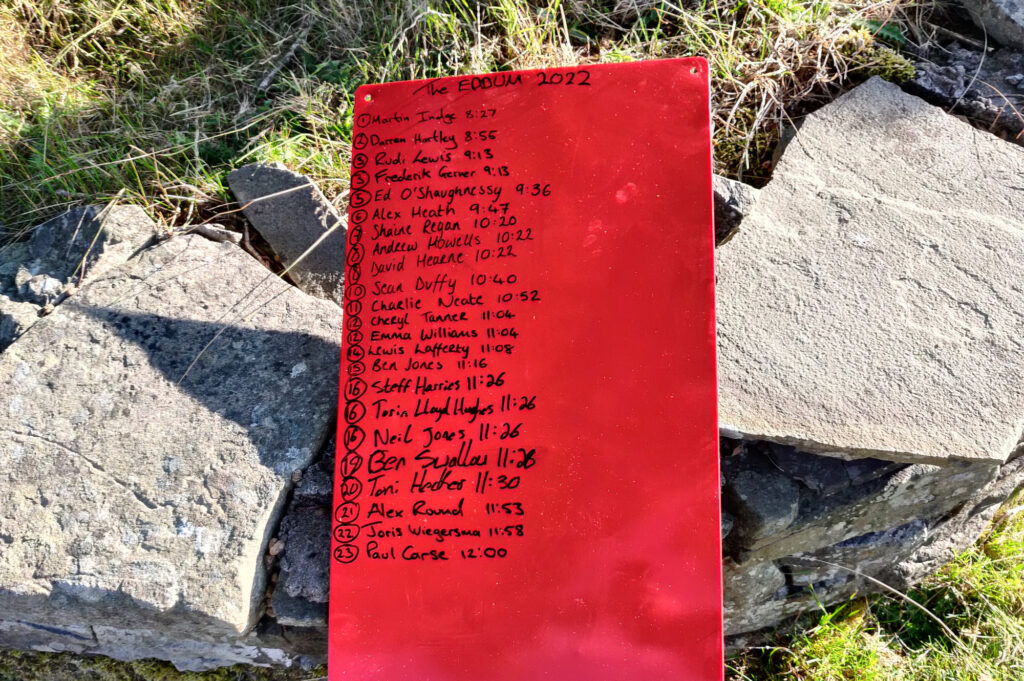 The EDDUM 2022
① Martin Indge 8:27
② Darren Hartley 8:55
③ Rudi Lewis 9:13
③ Frederik Gerner 9:13
⑤ Ed O'Shaughnessy 9:36
⑥ Alex Heath 9:47
⑦ Shaine Regan 10:20
⑧ Andrew Howells 10:22
⑧ David Hearne 10:22
⑩ Sean Duffy 10:40
⑪ Charlie Neate 10:52
⑫ Cheryl Tanner 11:04
⑫ Emma Williams 11:04
⑭ Lewis Lafferty 11:08
⑮ Ben Jones 11:16
⑯ Steff Harries 11:26
⑯ Lloyd Hughes 11:26
⑯ Neil Jones 11:26
⑲ Ben 11:28
⑳ Toni 11:30
㉑ Alex Round 11:53
㉒ Joris Wiegersma 11:58
㉓ Paul Carse 12:00